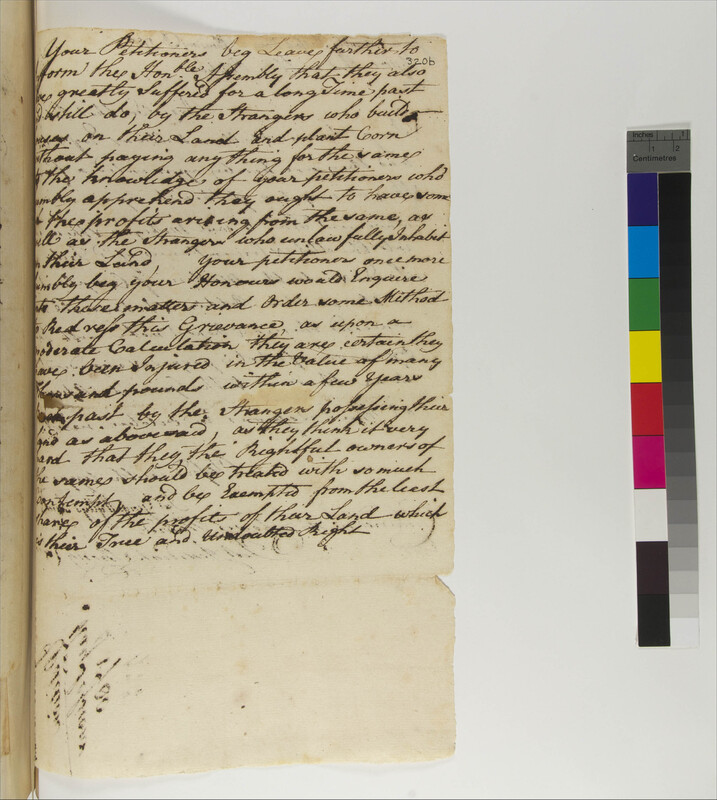 Your Petitioners beg Leave further to
320b
form the Hon:ble Assembly that they also
ve greatly Suffered for a long time past
d still do, by the Strangers who build
uses on their Land and plant Corn
thout paying any thing for the same
the knowledge of your petitioners who
umbly apprehend they ought to have some
the profits arising from the same, as
ll as the Strangers who unlawfully Inhabit
n their Land Your petitioners once more
umbly beg your Honours would Enquire
to those matters and Order some Method
Redress this Grievance, as upon a
oderate Calculation they are certain they
ave been Injured in the Value of many
thousand pounds within a few Years
past by the Strangers possessing their
and as abovesaid, as they think it very
ard that they, the Rightful owners of
he same should be treated with so much
contempt, and be Exempted from the least
hare of the profits of their Land which
is their True and Undoubted Right
Inches 1 2
Centimetres